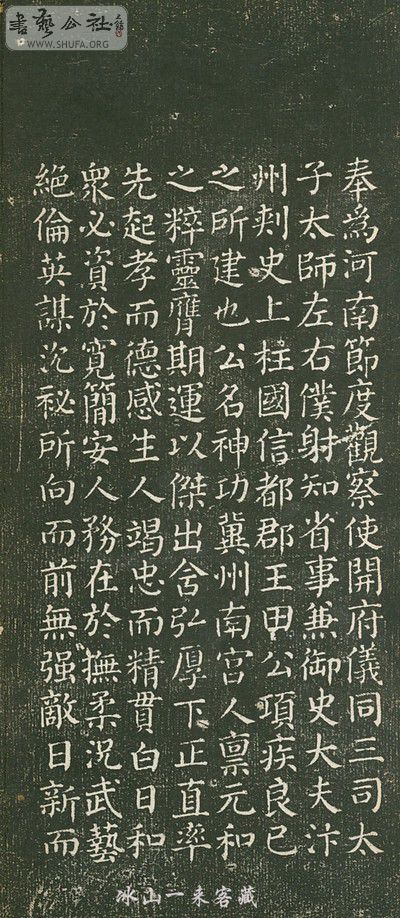 書藝公社
WWW.SHUFA.ORG
奉為河南節度觀察使開府儀同三司太
子太師左右僕射知省事兼御史大夫汴
州刺史上柱國信都郡王田公頃疾良已
之所建也公名神功冀州南宮人稟元和
之粹靈膺期運以傑出含弘厚下正直率
先起孝而德感生人竭忠而精貫白日和
眾必資於寬簡安人務在於撫柔況武藝
絕倫英謀沉祕所向而前無强敵日新而
冰山一来客藏